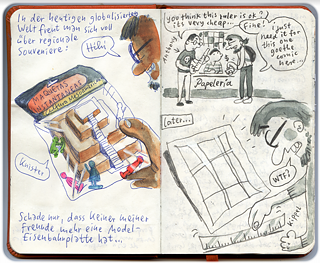 In der heutigen globalisierten
Welt freut man sich voll
über regionale
Souvenire!
Hihi
MAQUETAS
INSTANTANEAS
Knister
Schade nur, dass keiner meiner
Freunde mehr eine Model-
Eisenbahnplatte hat...
you think this ruler is ok?
it's very cheap...
Fine!
I just
need it for
this one
goethe
comic
here...
Papelería
Later...
WTF?
Kippel